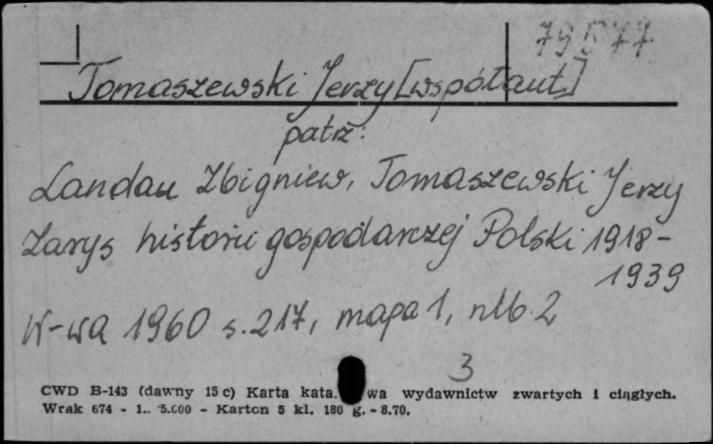 79577
Tomaszewski Jerzy [współaut.]
patrz:
Landau Zbigniew, Tomaszewski Jerzy
Zarys historii gospodarczej Polski 1918-
1939
W-wa 1960 s. 217, mapa 1, nlb. 2
3
CWD B-143 (dawny 15 c) Karta kata. wa wydawnictw zwartych i ciągłych.
Wrak 674 - 1.. 5.000 - Karton 5 kl. 180 g. - 8.70.